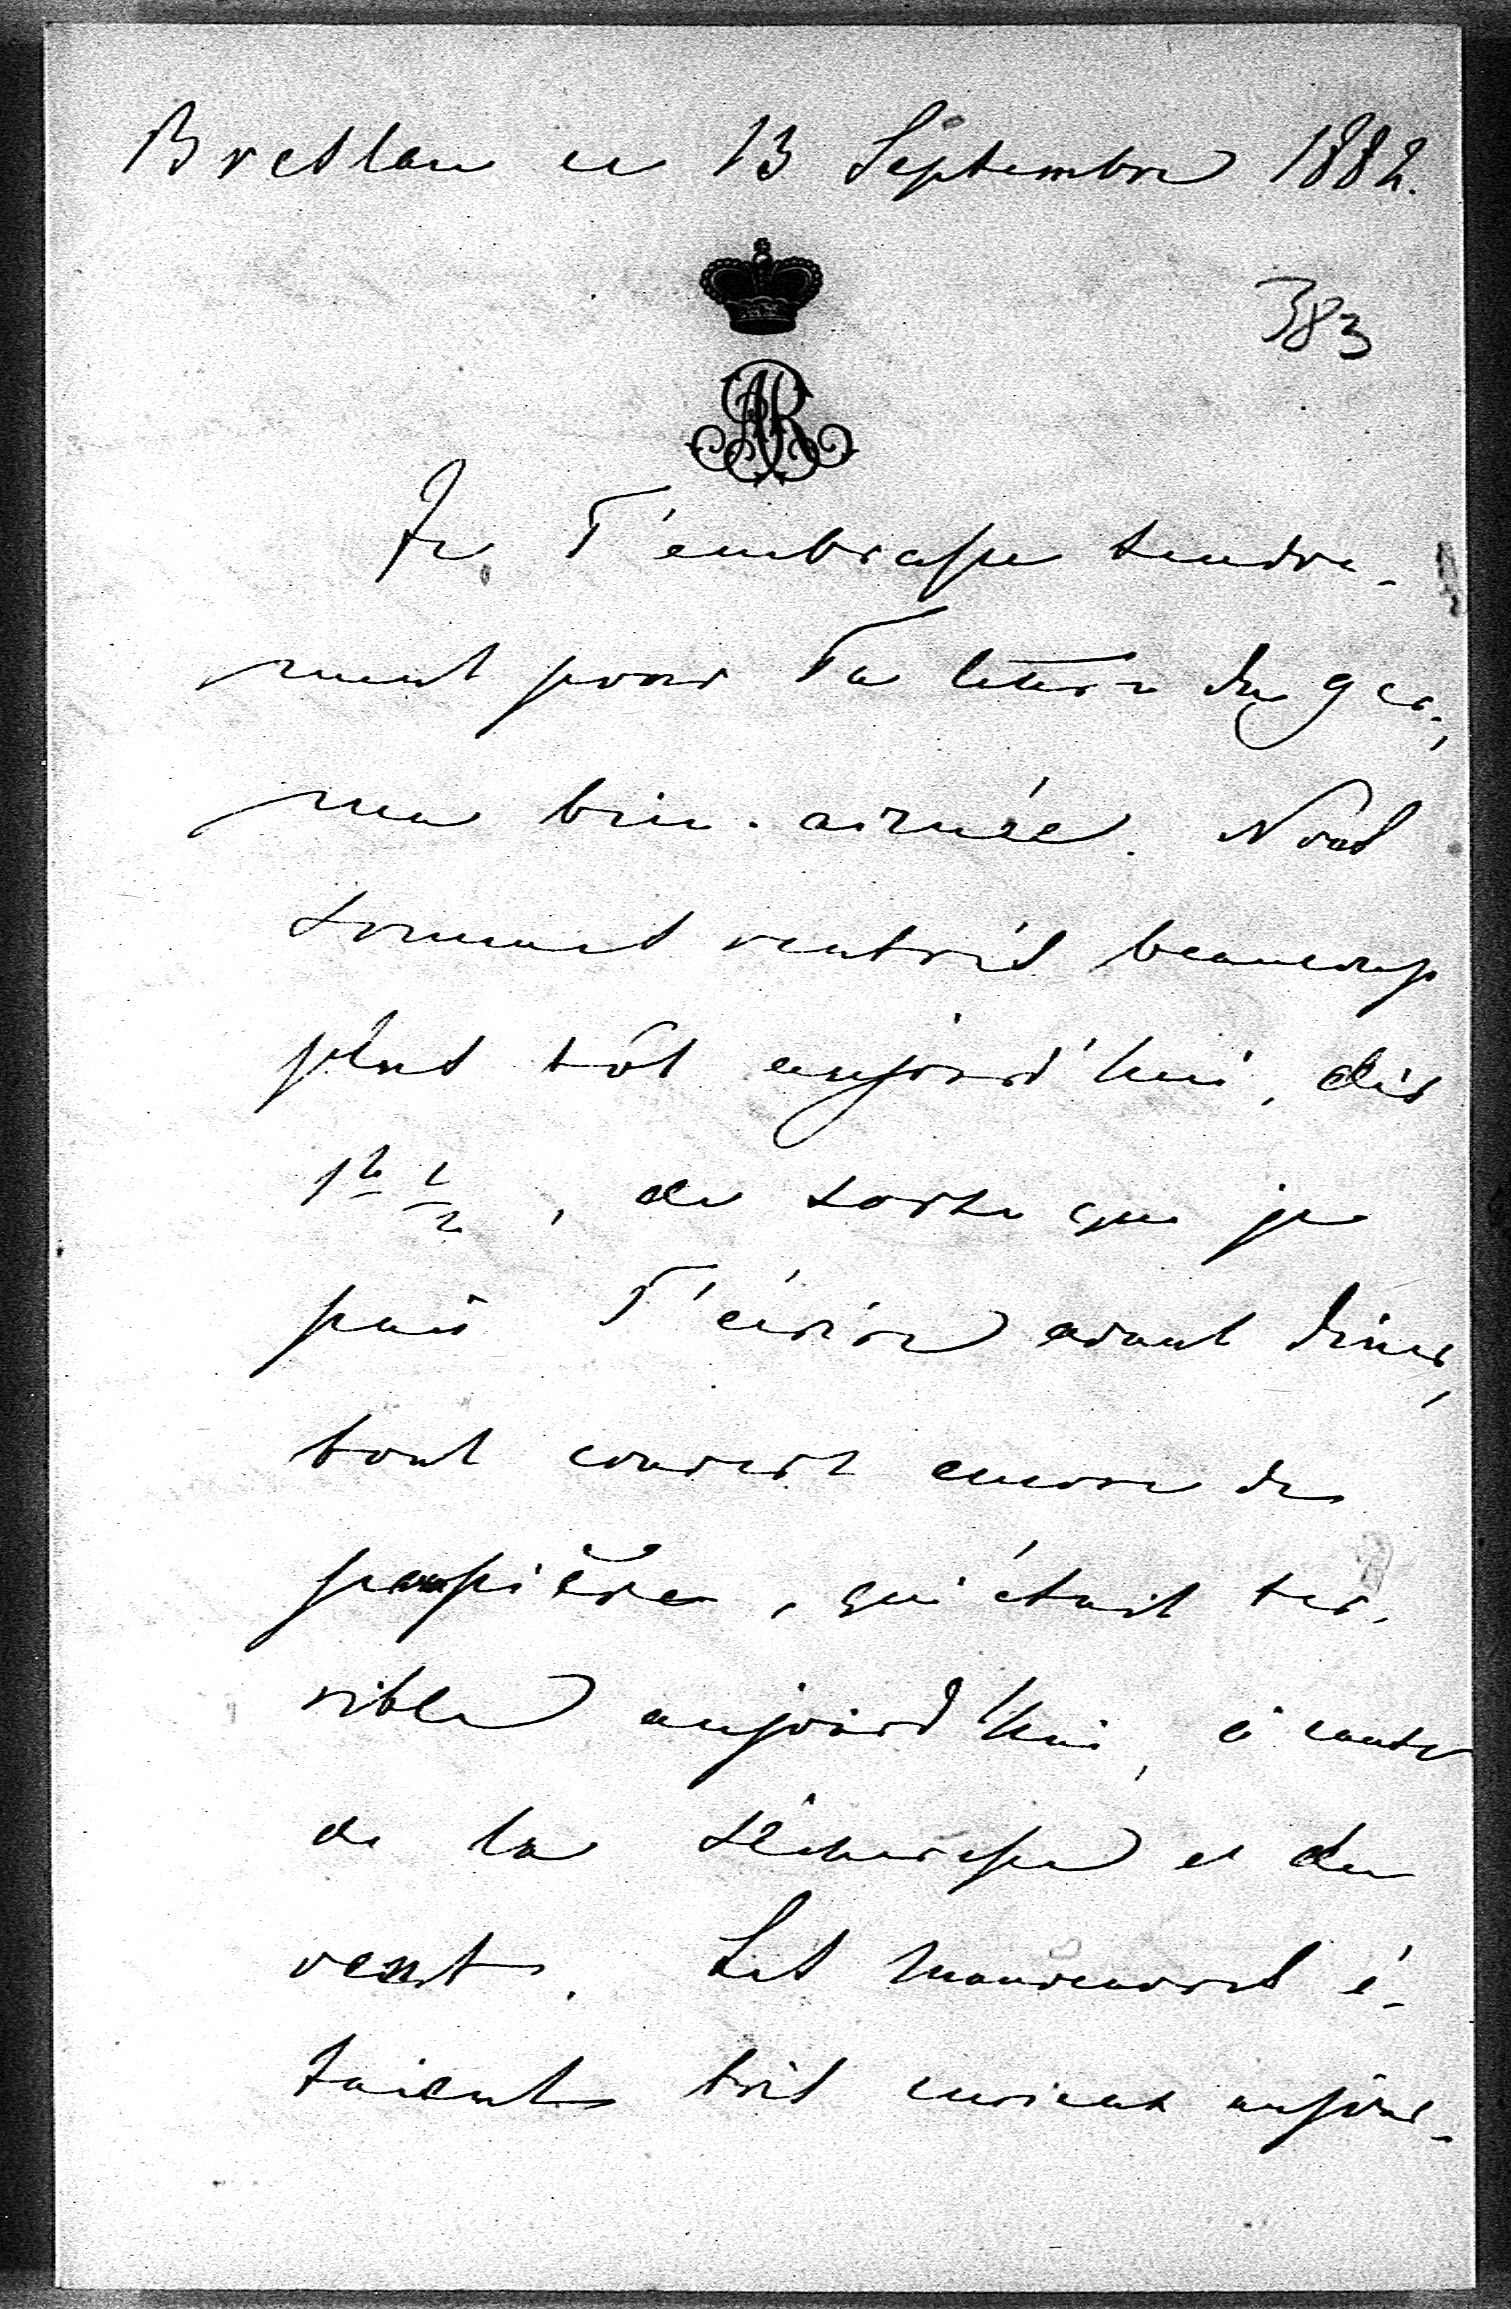 Breslau ce 13 Septembre 1882.
383
AR
Je T'embrasse tendre-
ment pour Ta lettre du 9 er.,
ma bien-aimée. Nous
sommes rentrés beaucoup
plus tôt aujourd'hui, dès
1h 1/2, de sorte que je
puis T'écrire avant dîner,
tout couvert encore de
poussière, qui était ter-
rible aujourd'hui, à cause
de la sécheresse et du
vent. Les manœuvres é-
taient très curieux aujour-